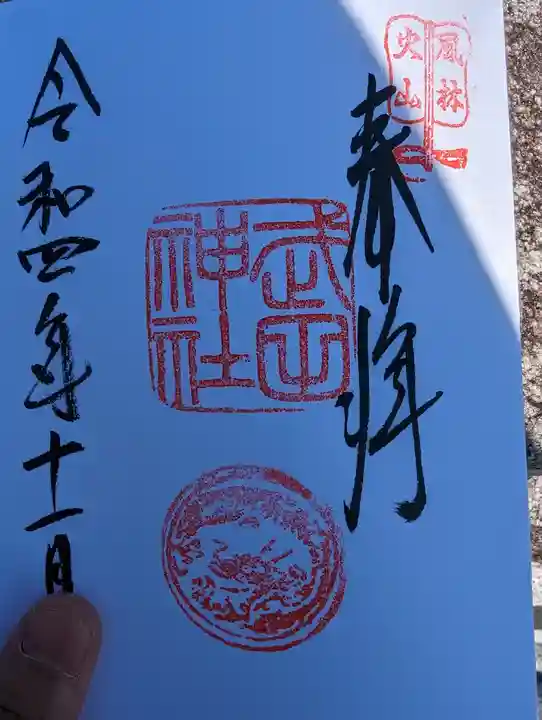 風林
火山
奉拝
武田
神社
令和四年十一月